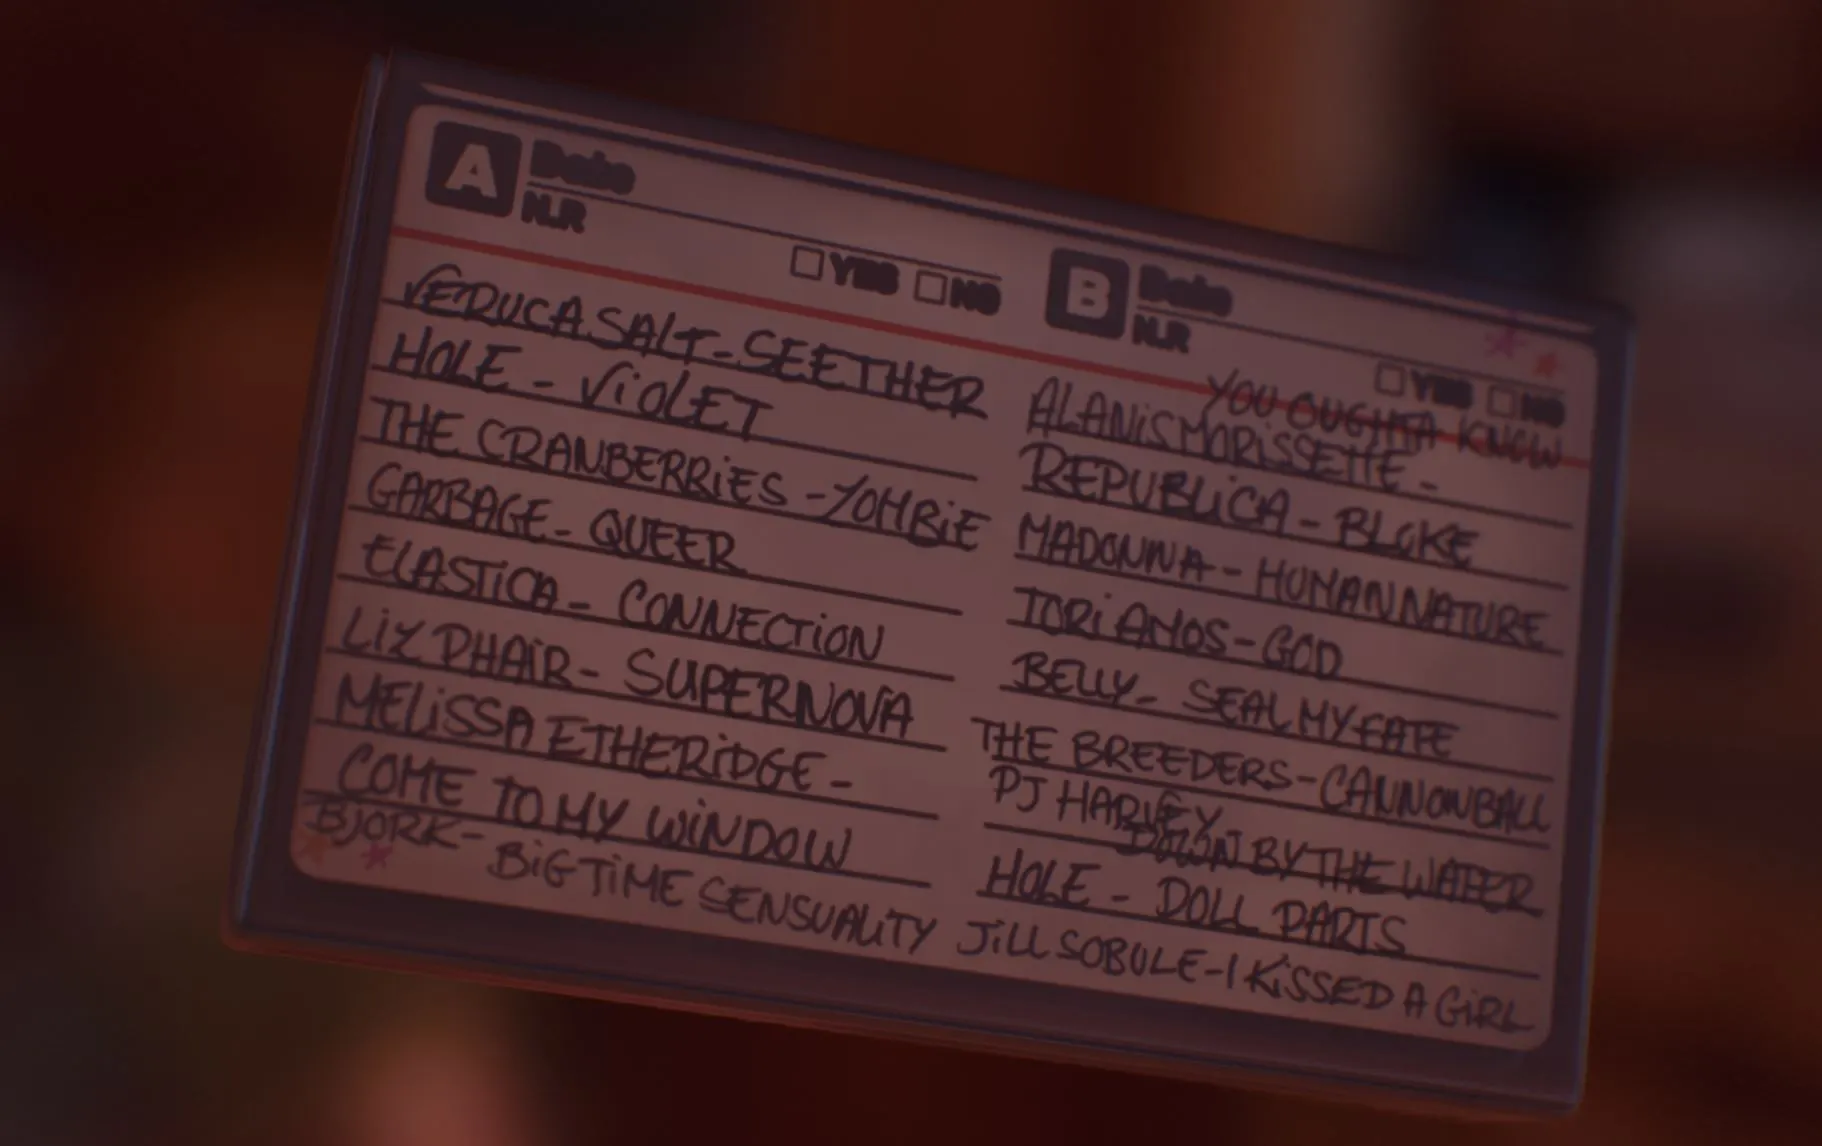 A Date
N.R
YES NO
VERUCA SALT - SEETHER
HOLE - VIOLET
THE CRANBERRIES - ZOMBIE
GARBAGE - QUEER
ELASTICA - CONNECTION
LIZ PHAIR - SUPERNOVA
MELISSA ETHERIDGE -
COME TO MY WINDOW
BJORK -
BIG TIME SENSUALITY
B Date
N.R
YES NO
YOU OUGHTA KNOW
ALANIS MORISSETTE -
REPUBLICA - BLOKE
MADONNA - HUMAN NATURE
TORI AMOS - GOD
BELLY - SEAL MY FATE
THE BREEDERS - CANNONBALL
PJ HARVEY
DOWN BY THE WATER
HOLE - DOLL PARTS
JILL SOBULE - I KISSED A GIRL